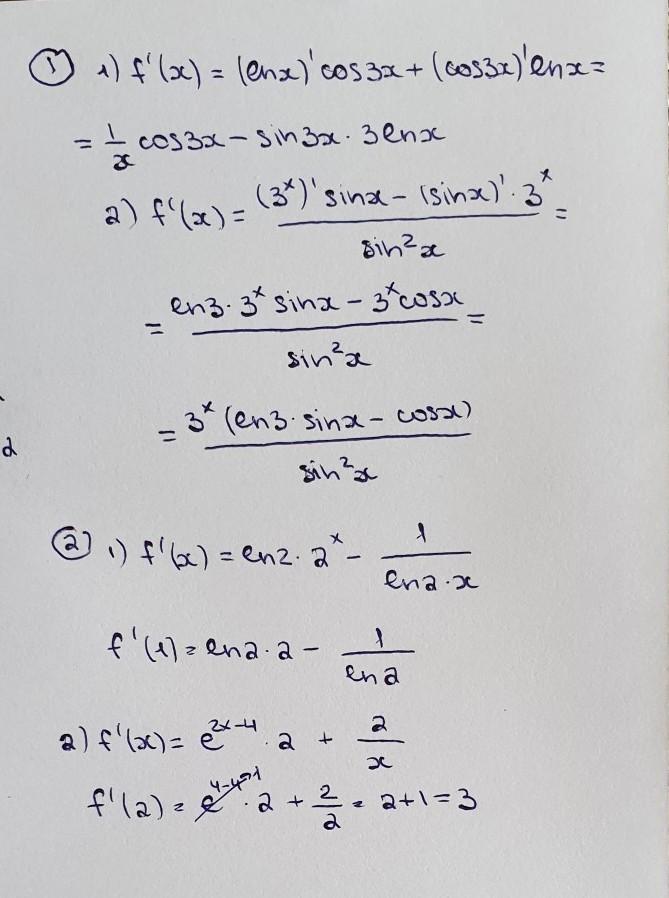 ① 1) f'(x) = (lnx)' cos3x + (cos3x)' lnx =
= 1/x cos3x - sin3x · 3lnx
2) f'(x) = ((3^x)' sinx - (sinx)' · 3^x) / sin²x =
= (ln3 · 3^x sinx - 3^x cosx) / sin²x =
= 3^x (ln3 · sinx - cosx) / sin²x
② 1) f'(x) = ln2 · 2^x - 1 / (ln2 · x)
f'(1) = ln2 · 2 - 1 / ln2
2) f'(x) = e^(2x-4) · 2 + 2/x
f'(2) = e^(4-4) →1 · 2 + 2/2 = 2+1=3